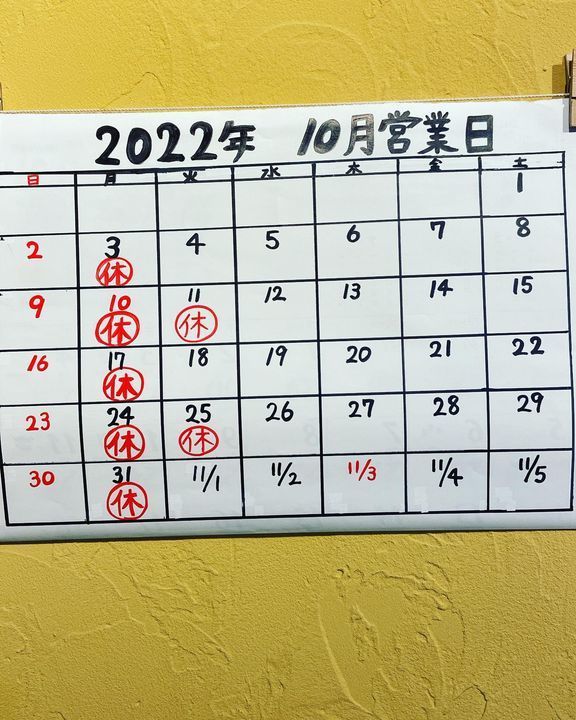 2022年 10月営業日
日 月 火 水 木 金 土
1
2 3 4 5 6 7 8
休
9 10 11 12 13 14 15
休 休
16 17 18 19 20 21 22
休
23 24 25 26 27 28 29
休 休
30 31 11/1 11/2 11/3 11/4 11/5
休